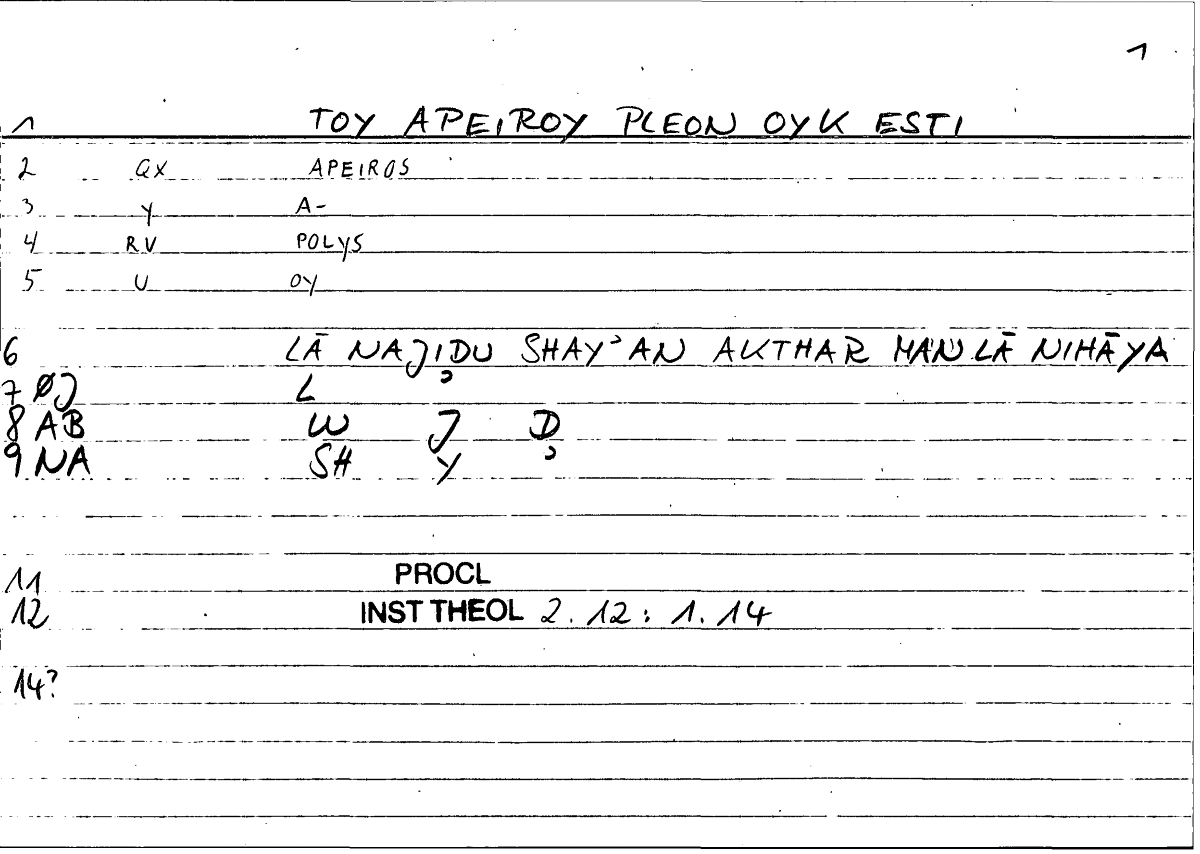 1
1 TOY APEIROY PLEON OYK ESTI
2 QX APEIROS
3 Y A-
4 RV POLYS
5 U OY
6 LĀ NAJIḌU SHAYʾAN AKTHAR MAN LĀ NIHĀYA
7 ØJ L
8 AB W J Ḍ
9 NA SH Y ʾ
11 PROCL
12 INST THEOL 2.12: 1.14
14?